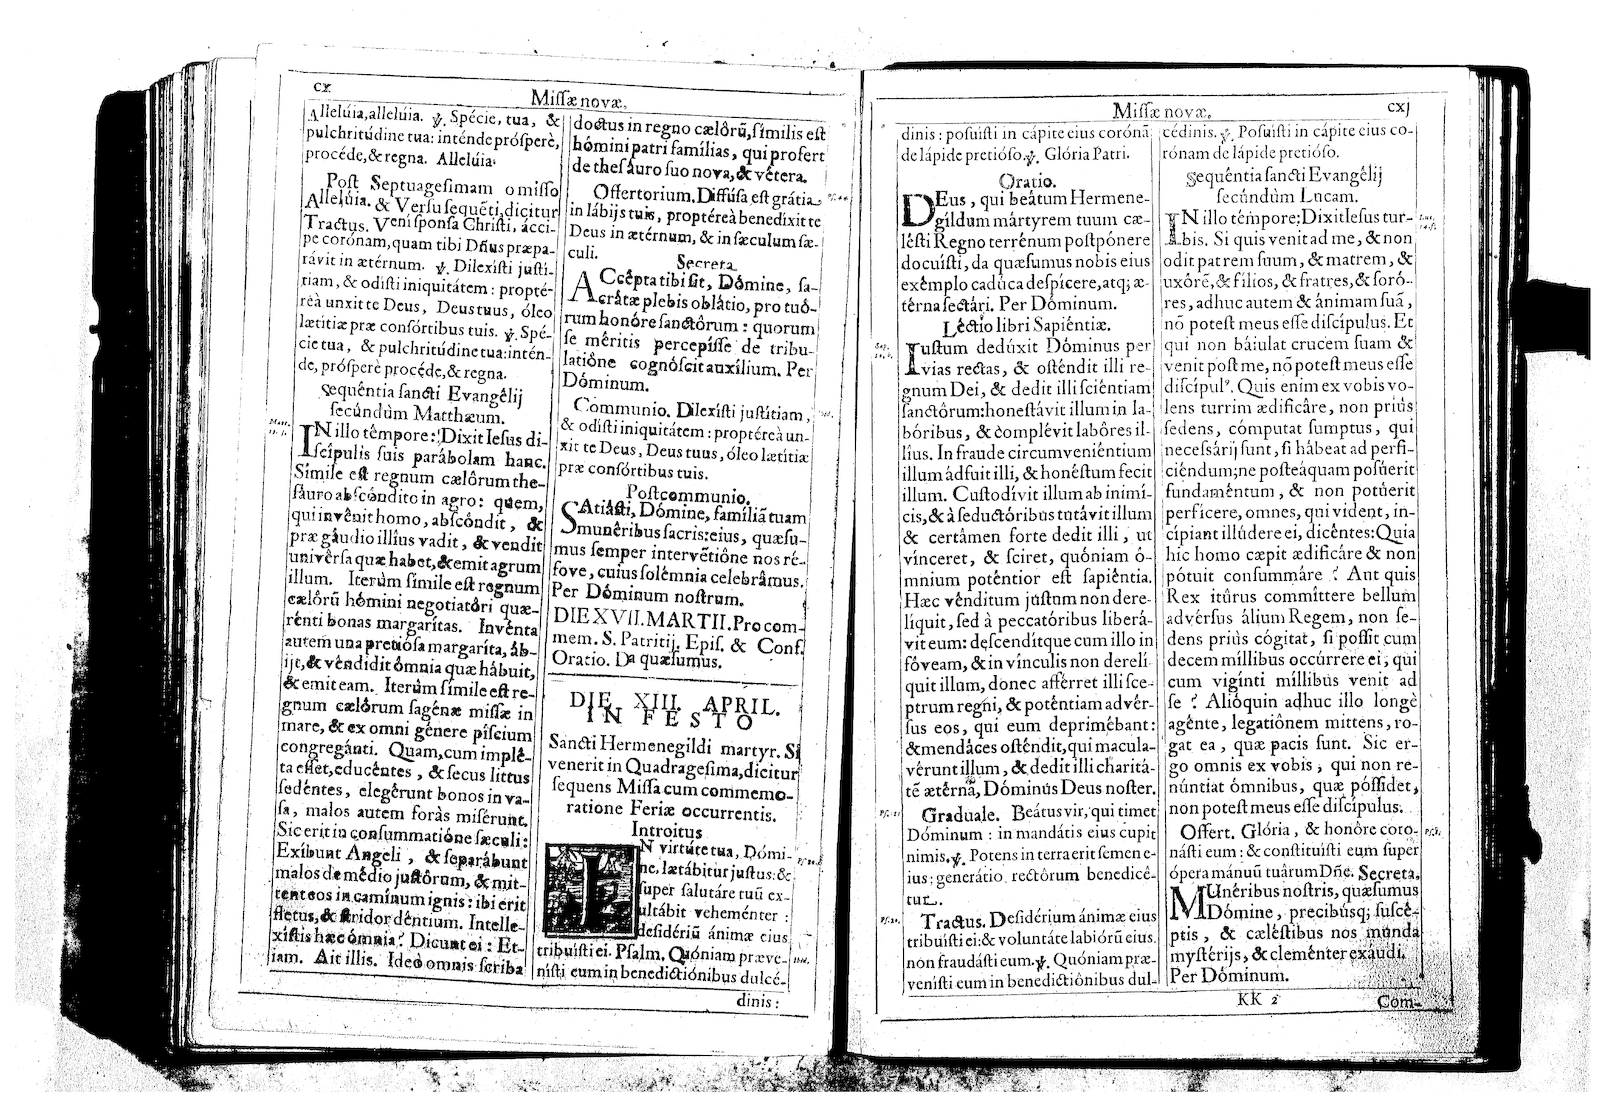 cx
Missæ novæ.
Allelúia, allelúia. ℣. Spécie, tua, &
pulchritúdine tua: inténde próſperè,
procéde, & regna. Allelúia.
Poſt Septuageſimam omiſſo
Allelúia. & Verſu ſequẽti, dicitur
Tractus. Vení ſponſa Chriſti, ácci-
pe corónam, quam tibi Dñus præpa-
rávit in ætérnum. ℣. Dilexíſti juſti-
tiam, & odíſti iniquitátem: propté-
reà unxit te Deus, Deus tuus, óleo
lætitiæ præ conſórtibus tuis. ℣. Spé-
cie tua, & pulchritúdine tua: intén-
de, próſperè procéde, & regna.
Sequêntia ſancti Evangêlij
ſecúndùm Matthæum.
IN illo têmpore: Dixit Ieſus di-
ſcípulis ſuis parábolam hanc.
Simile eſt regnum cælôrum the-
ſáuro abſcóndito in agro: quem,
qui invênit homo, abſcóndit, &
præ gáudio illíus vadit, & vendit
univêrſa quæ habet, & emit agrum
illum. Iterùm ſimile eſt regnum
cælôrũ hômini negotiatôri quæ-
rênti bonas margarítas. Invênta
autem una pretiôſa margaríta, áb-
ijt, & vêndidit ómnia quæ hábuit,
& emit eam. Iterùm ſimile eſt re-
gnum cælôrum ſagénæ miſſæ in
mare, & ex omni génere píſcium
congregánti. Quam, cum implê-
ta eſſet, educêntes, & ſecus littus
ſedéntes, elegêrunt bonos in va-
ſa, malos autem foràs miſérunt.
Sic erit in conſummatióne ſæculi:
Exíbunt Angeli, & ſeparábunt
malos de médio juſtôrum, & mit-
tent eos in camínum ignis: ibi erit
fletus, & ſtridor déntium. Intelle-
xíſtis hæc ómnia? Dicunt ei: Et-
iam. Ait illis. Ideò omnis ſcriba
doctus in regno cælôrũ, ſímilis eſt
hômini patri famílias, qui profert
de theſáuro ſuo nova, & vétera.
Offertorium. Diffúſa eſt grátia
in lábijs tuis, proptéreà benedíxit te
Deus in ætérnum, & in ſæculum ſæ-
culi.
Secreta
ACcêpta tibi ſit, Dómine, ſa-
crátæ plebis oblátio, pro tuô-
rum honóre ſanctôrum: quorum
ſe méritis percepíſſe de tribu-
latióne cognóſcit auxílium. Per
Dóminum.
Communio. Dilexíſti juſtítiam,
& odíſti iniquitátem: proptéreà un-
xit te Deus, Deus tuus, óleo lætítiæ
præ conſórtibus tuis.
Poſtcommunio.
SAtiáſti, Dómine, famíliã tuam
munêribus ſacris: eius, quæſu-
mus ſemper interventióne nos ré-
fove, cuius ſolémnia celebrámus.
Per Dóminum noſtrum.
DIE XVII. MARTII. Pro com-
mem. S. Patritij, Epiſ. & Conf.
Oratio. Da quæſumus.
DIE XIII. APRIL.
IN FESTO
Sancti Hermenegildi martyr. Si
venerit in Quadrageſima, dicitur
ſequens Miſſa cum commemo-
ratione Feriæ occurrentis.
Introitus
IN virtúte tua, Dómi-
ne, lætábitur juſtus: &
ſuper ſalutáre tuũ ex-
ultábit veheménter:
deſidériũ ánimæ eius
tribuíſti ei. Pſalm. Quóniam præve-
níſti eum in benedictiónibus dulcé-
dinis:
Missæ novæ.
cxj
dinis: poſuíſti in cápite eius corónã
de lápide pretióſo. ℣. Glória Patri.
Oratio.
DEus, qui beátum Hermene-
gíldum mártyrem tuum cæ-
léſti Regno terrénum poſtpónere
docuíſti, da quæſumus nobis eius
exêmplo cadúca deſpícere, atq; æ-
têrna ſectári. Per Dóminum.
Léctio libri Sapiéntiæ.
Iuſtum dedúxit Dóminus per
vias rectas, & oſténdit illi re-
gnum Dei, & dedit illi ſciéntiam
ſanctôrum: honeſtávit illum in la-
bóribus, & complévit labôres il-
líus. In fraude circumveniéntium
illum ádfuit illi, & honéſtum fecit
illum. Cuſtodívit illum ab inimí-
cis, & à ſeductóribus tutávit illum
& certámen forte dedit illi, ut
vínceret, & ſciret, quóniam ó-
mnium poténtior eſt ſapiéntia.
Hæc vénditum juſtum non dere-
líquit, ſed à peccatóribus liberá-
vit eum: deſcendítque cum illo in
fóveam, & in vínculis non derelí-
quit illum, donec afférret illi ſce-
ptrum regni, & poténtiam advér-
ſus eos, qui eum deprimébant:
& mendáces oſténdit, qui macula-
vérunt illum, & dedit illi charitá-
tẽ ætérnã, Dóminus Deus noſter.
Graduale. Beátus vir, qui timet
Dóminum: in mandátis eius cupit
nimis. ℣. Potens in terra erit ſemen e-
ius: generátio rectórum benedicé-
tur.
Tractus. Deſidérium ánimæ eius
tribuíſti ei: & voluntáte labiórũ eius
non fraudáſti eum. ℣. Quóniam præ-
veníſti eum in benedictiónibus dul-
cédinis. ℣. Poſuíſti in cápite eius co-
rónam de lápide pretióſo.
Sequéntia ſancti Evangêlij
ſecúndùm Lucam.
IN illo témpore: Dixit Ieſus tur-
bis. Si quis venit ad me, & non
odit patrem ſuum, & matrem, &
uxórẽ, & fílios, & fratres, & ſoró-
res, adhuc autem & ánimam ſuã,
nõ poteſt meus eſſe diſcípulus. Et
qui non báiulat crucem ſuam &
venit poſt me, nõ poteſt meus eſſe
diſcípulꝰ. Quis enim ex vobis vo-
lens turrim ædificáre, non priùs
ſedens, cómputat ſumptus, qui
neceſſárij ſunt, ſi hábeat ad perfi-
ciéndum; ne poſteáquam poſúerit
fundaméntum, & non potúerit
perfícere, omnes, qui vident, in-
cípiant illúdere ei, dicéntes: Quia
hic homo cæpit ædificáre & non
pótuit conſummáre? Aut quis
Rex itúrus commíttere bellum
advérſus álium Regem, non ſe-
dens priùs cógitat, ſi poſſit cum
decem míllibus occúrrere ei, qui
cum vigínti míllibus venit ad
ſe? Alióquin adhuc illo longè
agénte, legatiónem mittens, ro-
gat ea, quæ pacis ſunt. Sic er-
go omnis ex vobis, qui non re-
núntiat ómnibus, quæ póſſidet,
non poteſt meus eſſe diſcípulus.
Offert. Glória, & honóre coro-
náſti eum: & conſtituíſti eum ſuper
ópera mánuũ tuárum Dñe. Secreta.
MUnéribus noſtris, quæſumus
Dómine, precibúsq; ſuſcé-
ptis, & cæléſtibus nos munda
myſtérijs, & cleménter exáudi.
Per Dóminum.
KK 2
Com-